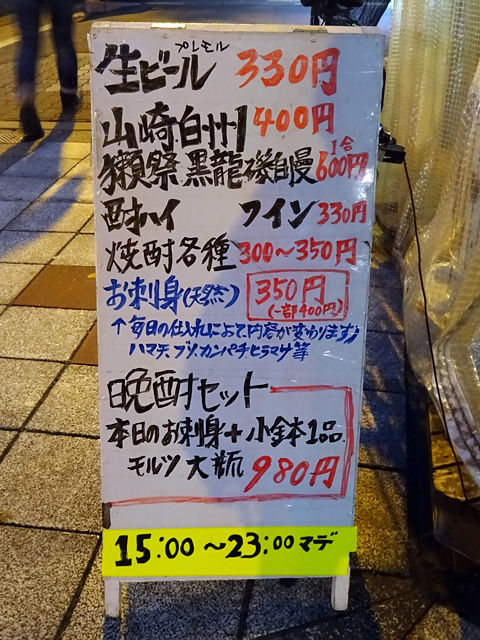 プレモル
生ビール 330円
山崎白州 400円
獺祭 黒龍 磯自慢 1合 600円
酎ハイ ワイン 330円
焼酎各種 300～350円
お刺身(天然) 350円
(一部400円)
↑毎日の仕入れによって内容が変わります。
ハマチ、ブリ、カンパチ、ヒラマサ等
晩酌セット
本日のお刺身+小鉢1品
モルツ 大瓶 980円
15:00～23:00マデ